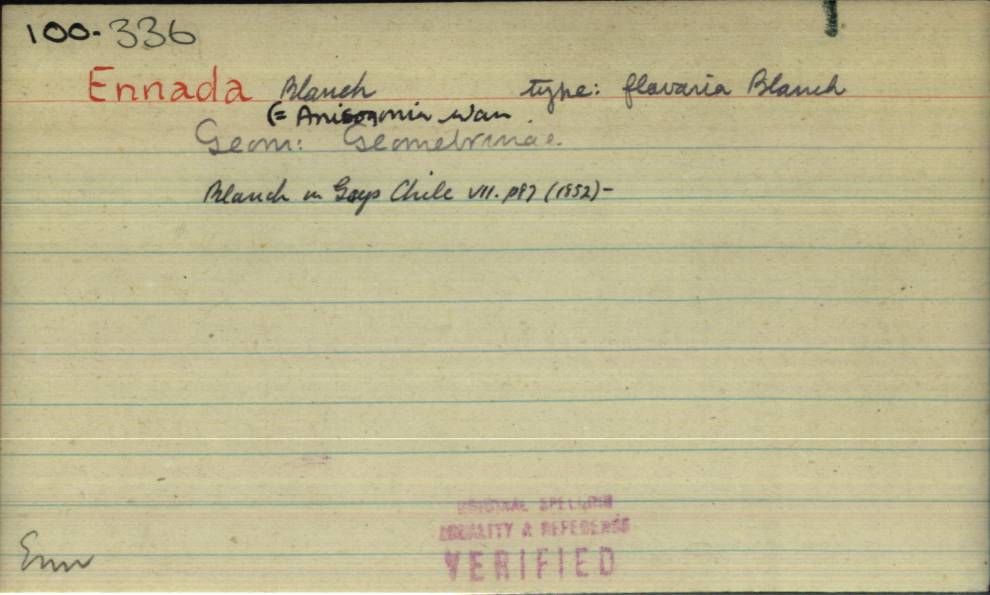 100-336
Ennada Blanch type: flavaria Blanch
(= Anisogonia Warr.
Geom: Geometrinae.
Blanch in Gays Chile VII. p87 (1852)-
ORIGINAL SPELLING
LOCALITY & REFERENCE
VERIFIED
Enn